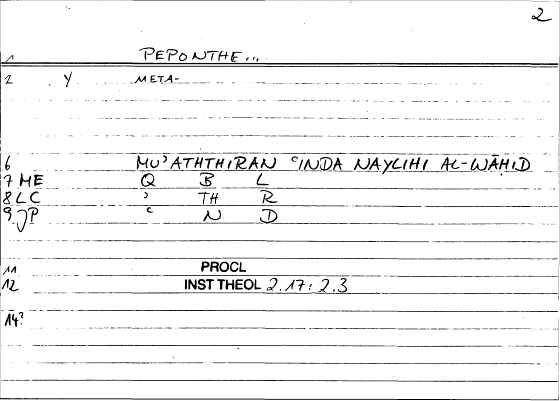 2
1 PEPONTHE...
2 Y META-
6 MUʾATHTHIRAN ʿINDA NAYLIHI AL-WĀḤID
7 ME Q B L
8 LC ʾ TH R
9 JP ʿ N D
11 PROCL
12 INST THEOL 2.17: 2.3
14?